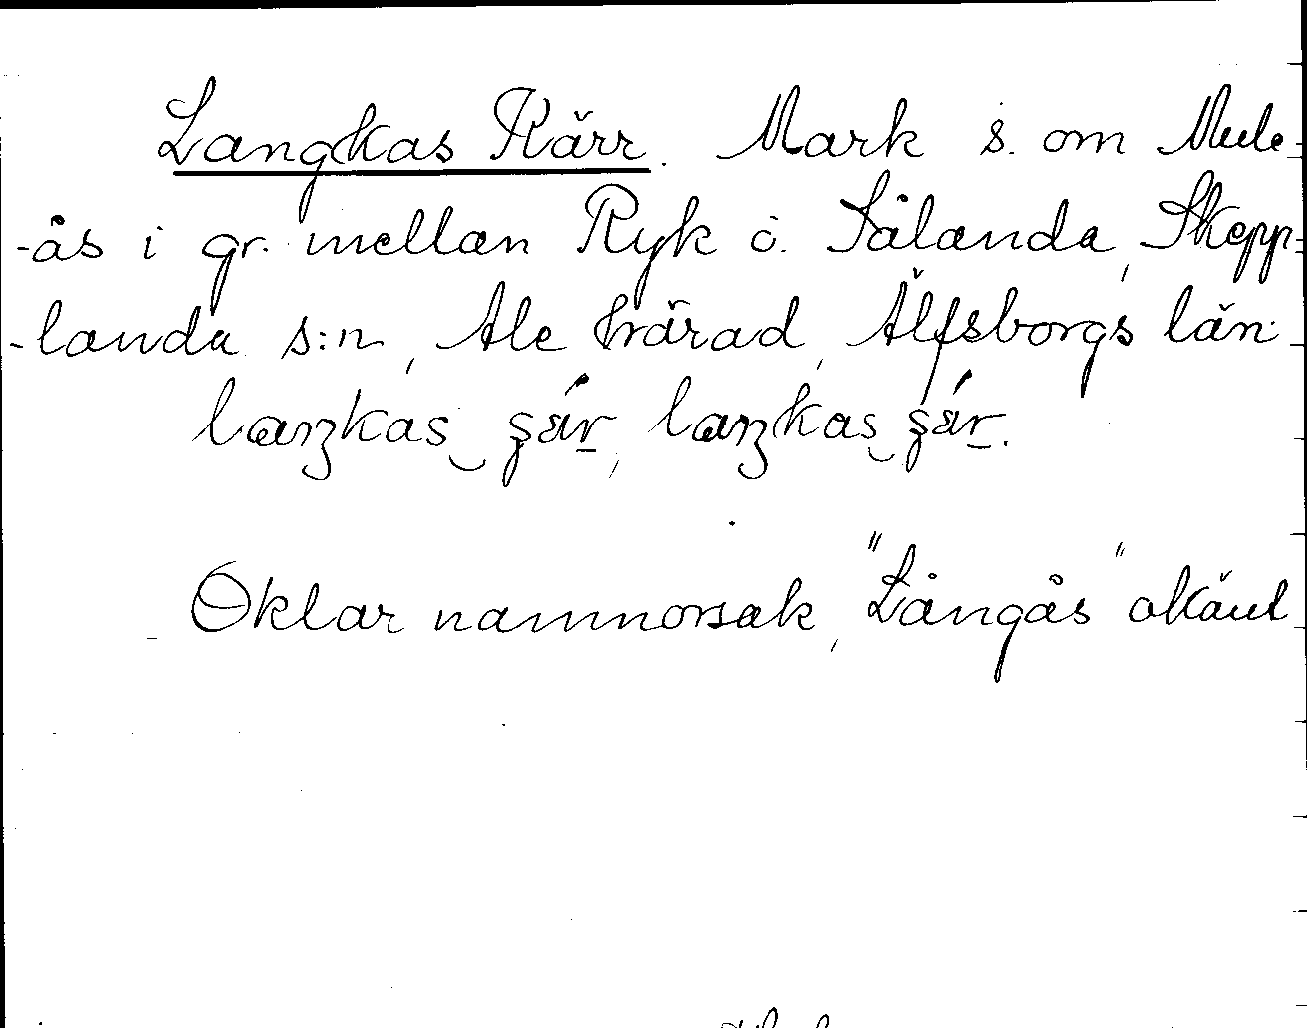 Langkas Kärr. Mark s. om Mule
-ås i gr. mellan Ryk o. Sålanda, Skepp
-landa s:n, Ale härad, Älfsborgs län.
Oklar namnorsak, "Långås" okänt